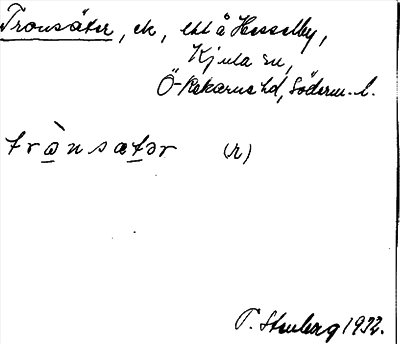 Tronsäter, ek, ett å Hesselby,
Kjula sn,
Ö-Rekarne hd, Söderm. l.
trònsætər (r)
P. Stenberg 1932.